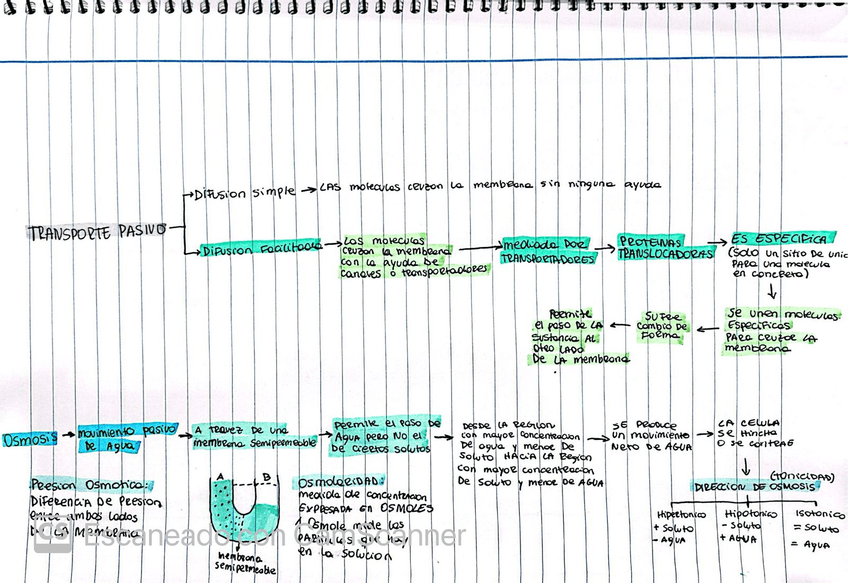 Difusion simple → LAS moleculas cruzan la membrana sin ninguna ayuda
TRANSPORTE PASIVO
Difusion Facilitada → Las moleculas
cruzan la membrana
con la ayuda de
canales o transportadores
mediada por
TRANSPORTADORES
PROTEINAS
TRANSLOCADORAS
ES ESPECIFICA
(Solo un sitio de unic
PARA una molecula
en concreto)
Se unen moleculas
Especificas
PARA cruzar LA
membrana
Sufre
cambio de
Forma
Permite
el paso de LA
sustancia AL
otro LADO
De LA membrana
Osmosis → movimiento pasivo
De Agua
A travez De una
membrana semipermeable
Permite el Paso De
Agua pero No el
De ciertos solutos
DESDE LA Region
con mayor concentracion
De agua y menor De
Soluto HACIA LA Region
con mayor concentracion
De soluto y menor de AGUA
SE PRODUCE
un movimiento
NETO DE AGUA
LA CELULA
Se Hincha
O se contrae
(TONICIDAD)
DIRECCION DE OSMOSIS
Hipertonico
+ Soluto
- AGUA
Hipotonico
- Soluto
+ AGUA
Isotonico
= Soluto
= Agua
Presion Osmotica:
DIFERENCIA DE Presion
entre ambos Lados
De LA Membrana
A B
membrana
semipermeable
OSMOLARIDAD:
medida de concentracion
EXPRESADA en OSMOLES
Osmole mide las
en la solucion
CS Escaneado con CamScanner